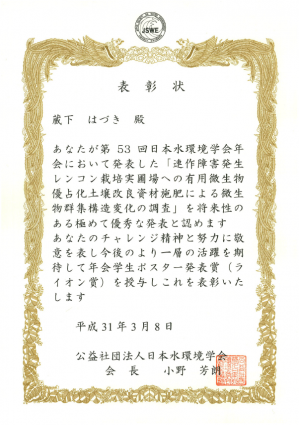 JSWE
表彰状
蔵下 はづき 殿
あなたが第 53 回日本水環境学会年
会において発表した「連作障害発生
レンコン栽培実圃場への有用微生物
優占化土壌改良資材施肥による微生
物群集構造変化の調査」を将来性の
ある極めて優秀な発表と認めます
あなたのチャレンジ精神と努力に敬
意を表し今後のより一層の活躍を期
待して年会学生ポスター発表賞（ラ
イオン賞）を授与しこれを表彰いた
します
平成 31 年 3 月 8 日
公益社団法人日本水環境学会
会 長 小野 芳朗